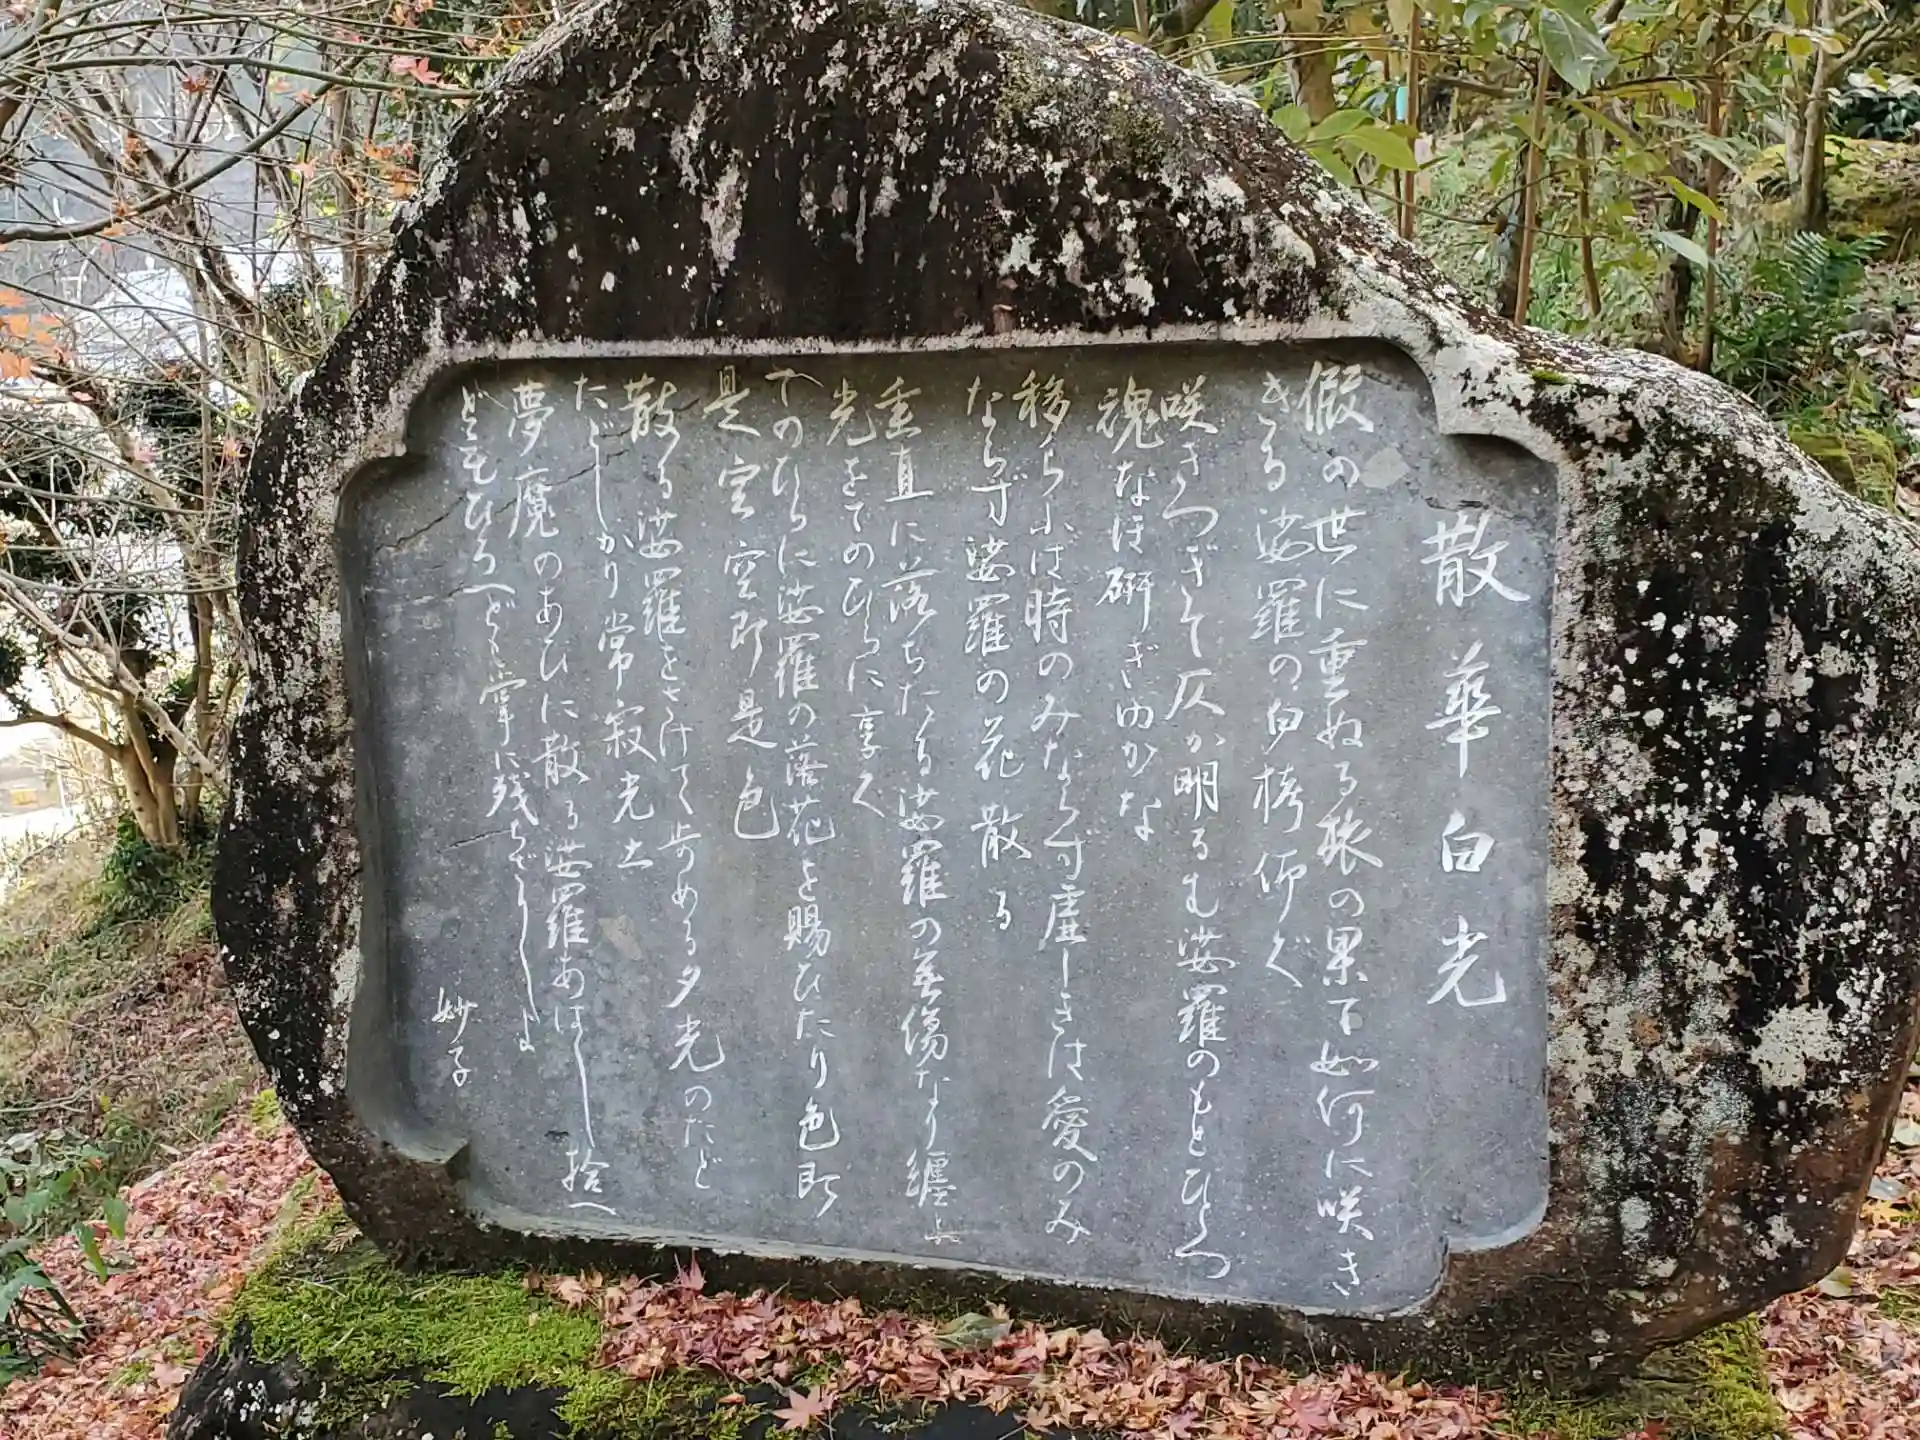 散華白光
假の世に重ぬる旅の果て如何に咲き
きる娑羅の白栲仰ぐ
咲きつぎて仄か明るむ娑羅のもとひとつ
魂なほ研ぎゆかな
移らふは時のみならず虚しきは愛のみ
ならず娑羅の花散る
垂直に落ちたる娑羅の無傷なり纏ふ
光をてのひらに享く
てのひらに娑羅の落花を賜ひたり色即
是空空即是色
散る娑羅をさけて歩める夕光のたど
たどしかり常寂光土
夢魔のあひに散る娑羅あはしし拾へ
どもひろへども掌に残らざらしよ
妙子